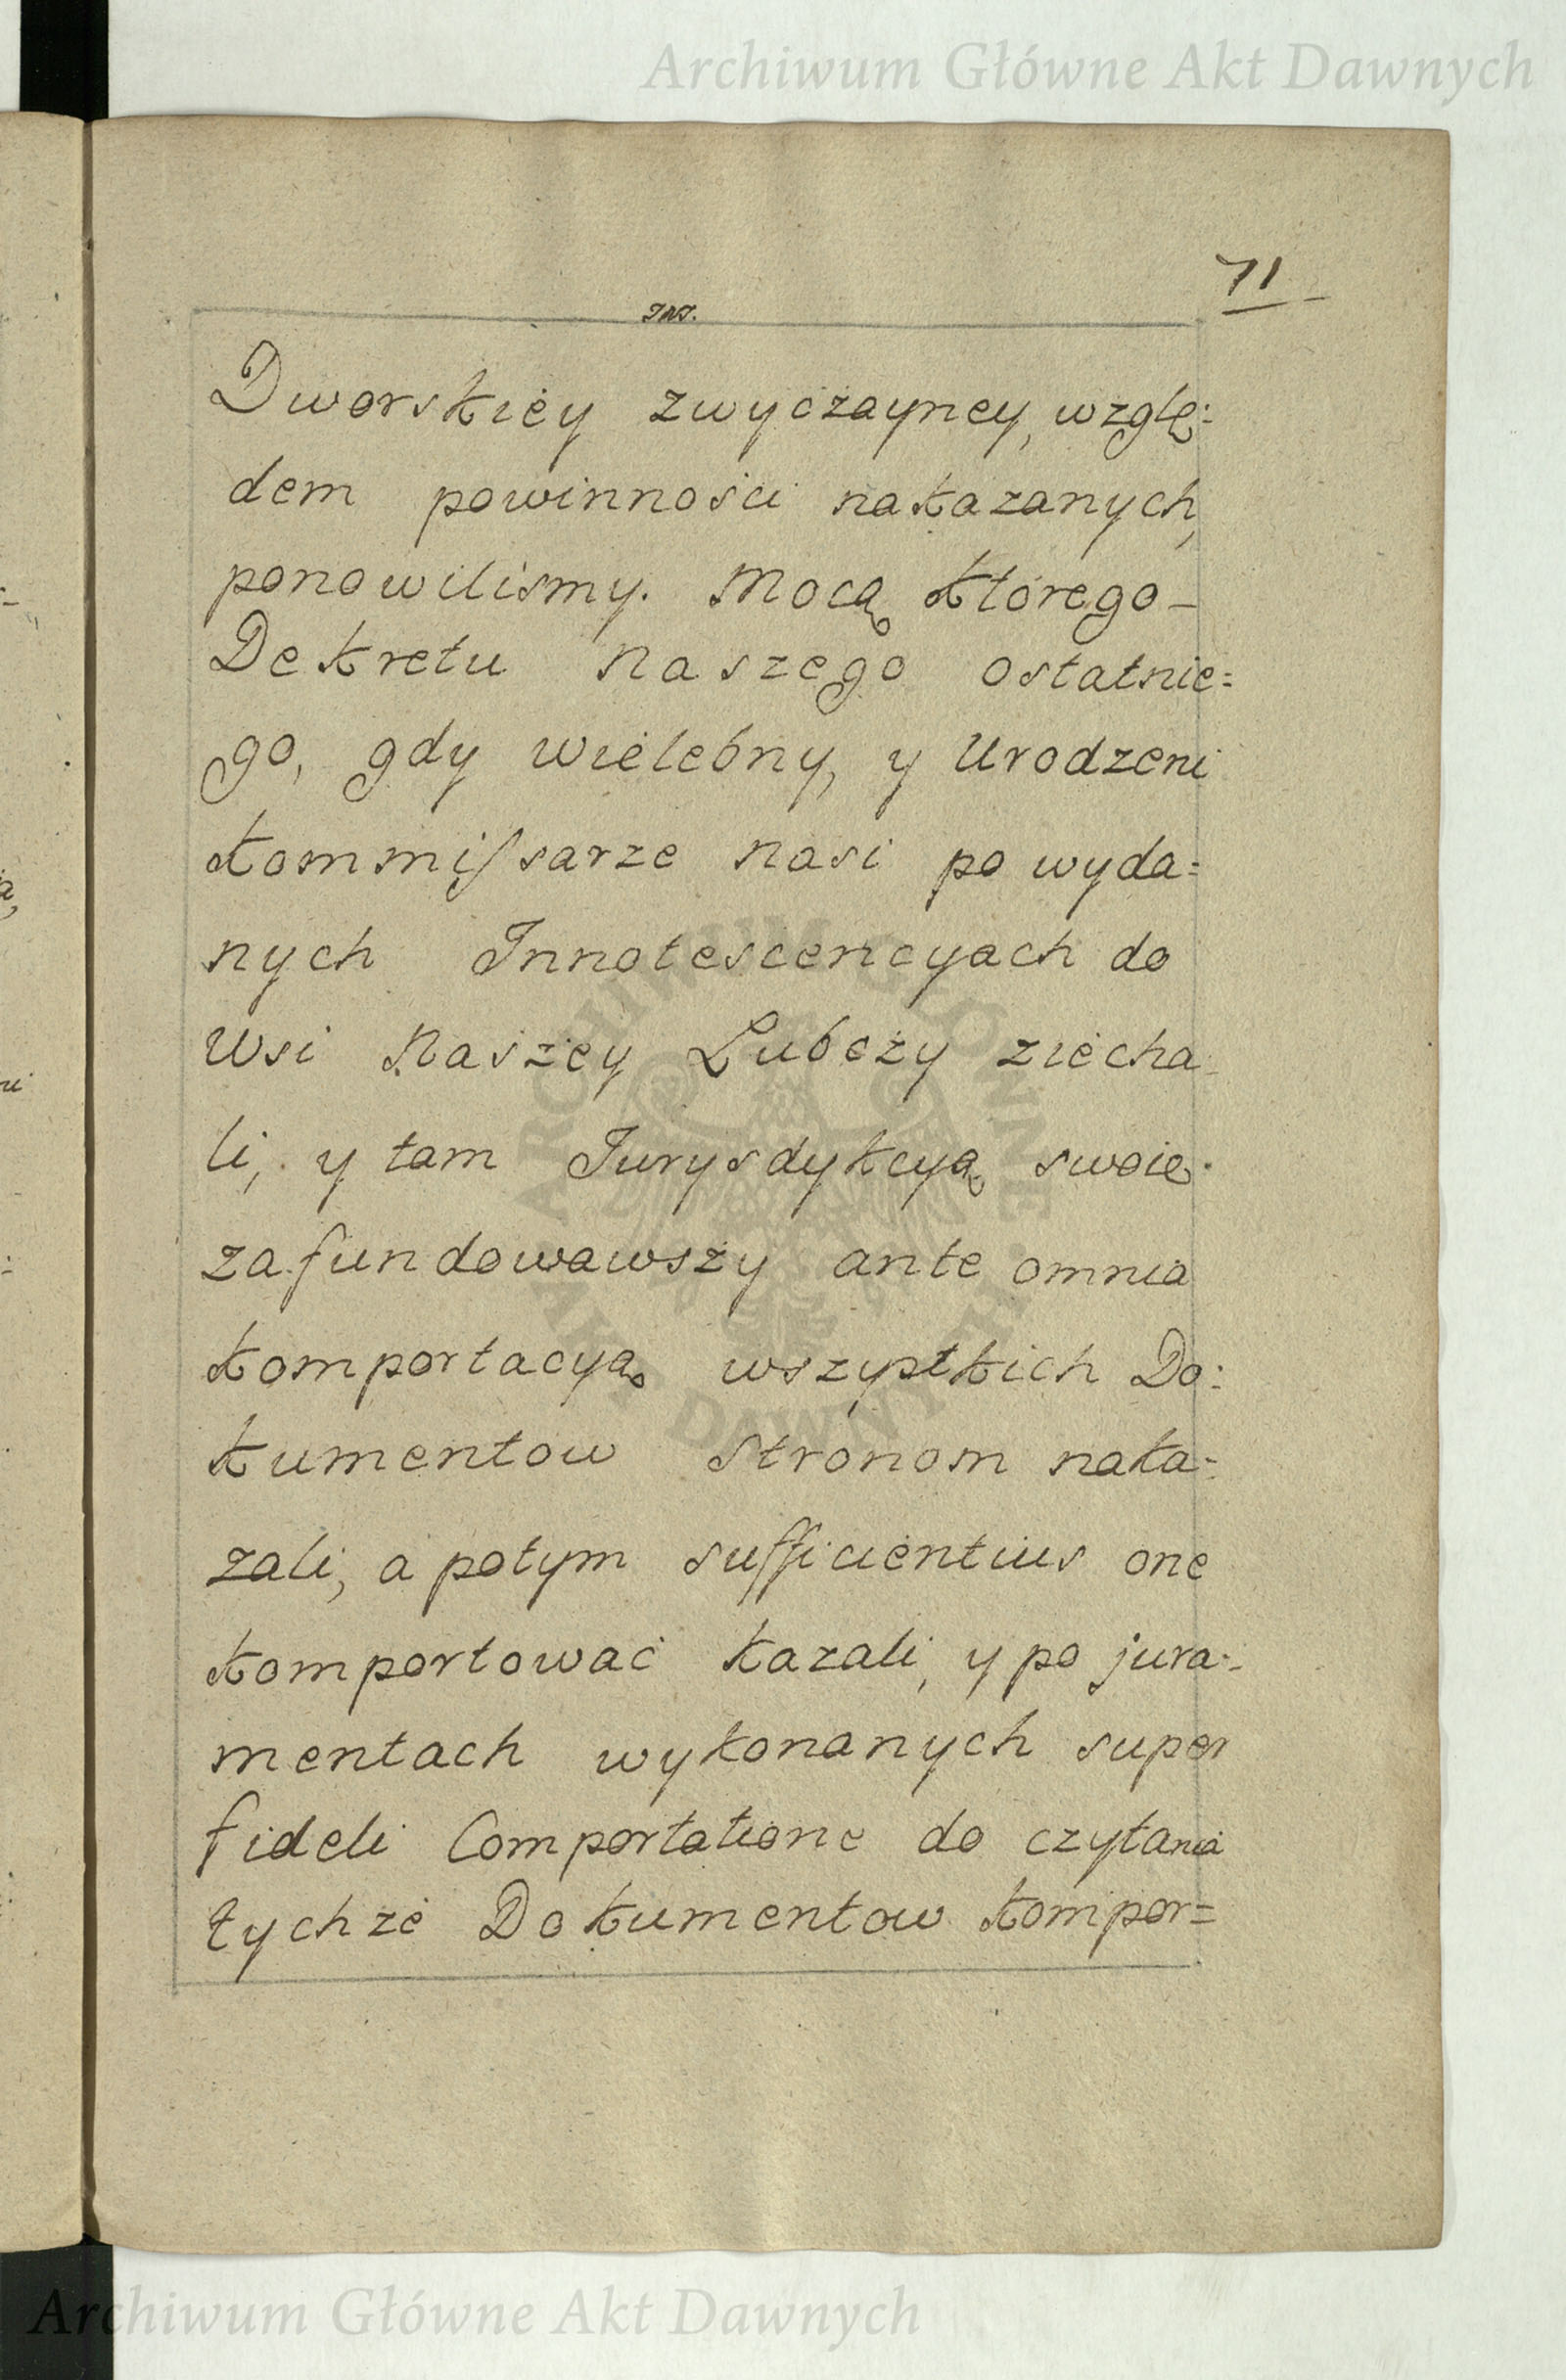 Archiwum Główne Akt Dawnych
71
Dworskiėy zwyczayney, wzglę:
dem powinności nakazanych,
ponowiliśmy. Mocą którego_
Dekretu Naszego ostatnie=
go, gdy wielebny, y Urodzeni
Kommiſsarze nasi po wyda=
nych Innotescencyach do
Wsi Naszey Lubczy ziecha
li, y tam Jurysdykcyą swoię.
zafundowawszy ante omnia
Komportacyą wszystkich Do:
kumentow Stronom naka=
zali, a potym sufficientius one
Komportować kazali, y po jura:
mentach wykonanych super
fideli Comportatione do czytania
tychże Dokumentow Kompor=
Archiwum Główne Akt Dawnych